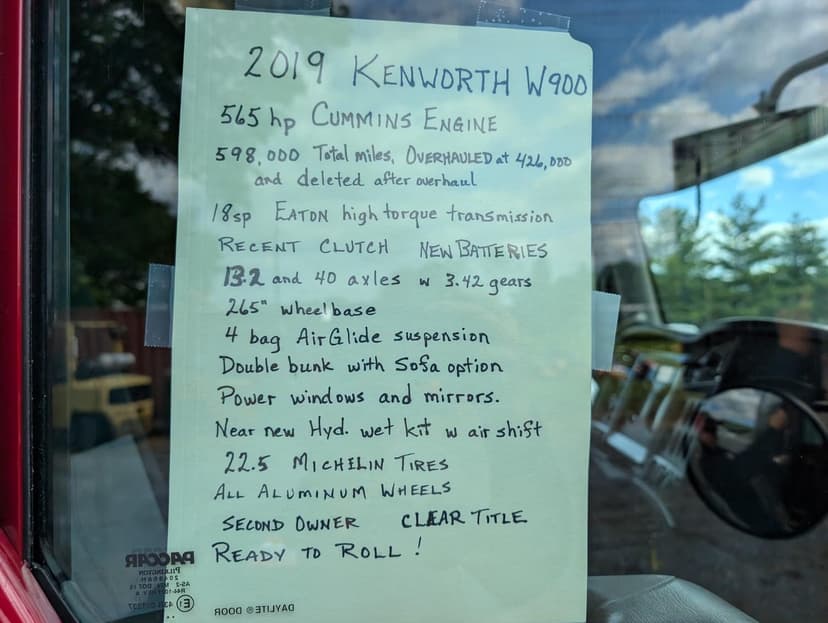 2019 KENWORTH W900
565 hp CUMMINS ENGINE
598,000 Total miles, OVERHAULED at 426,000
and deleted after overhaul
18sp EATON high torque transmission
RECENT CLUTCH NEW BATTERIES
13.2 and 40 axles w 3.42 gears
265" wheelbase
4 bag AirGlide suspension
Double bunk with Sofa option
Power windows and mirrors.
Near new Hyd. wet kit w air shift
22.5 MICHELIN TIRES
ALL ALUMINUM WHEELS
SECOND OWNER CLEAR TITLE
READY TO ROLL !
PACCAR
PILKINGTON
DAYLITE ® DOOR